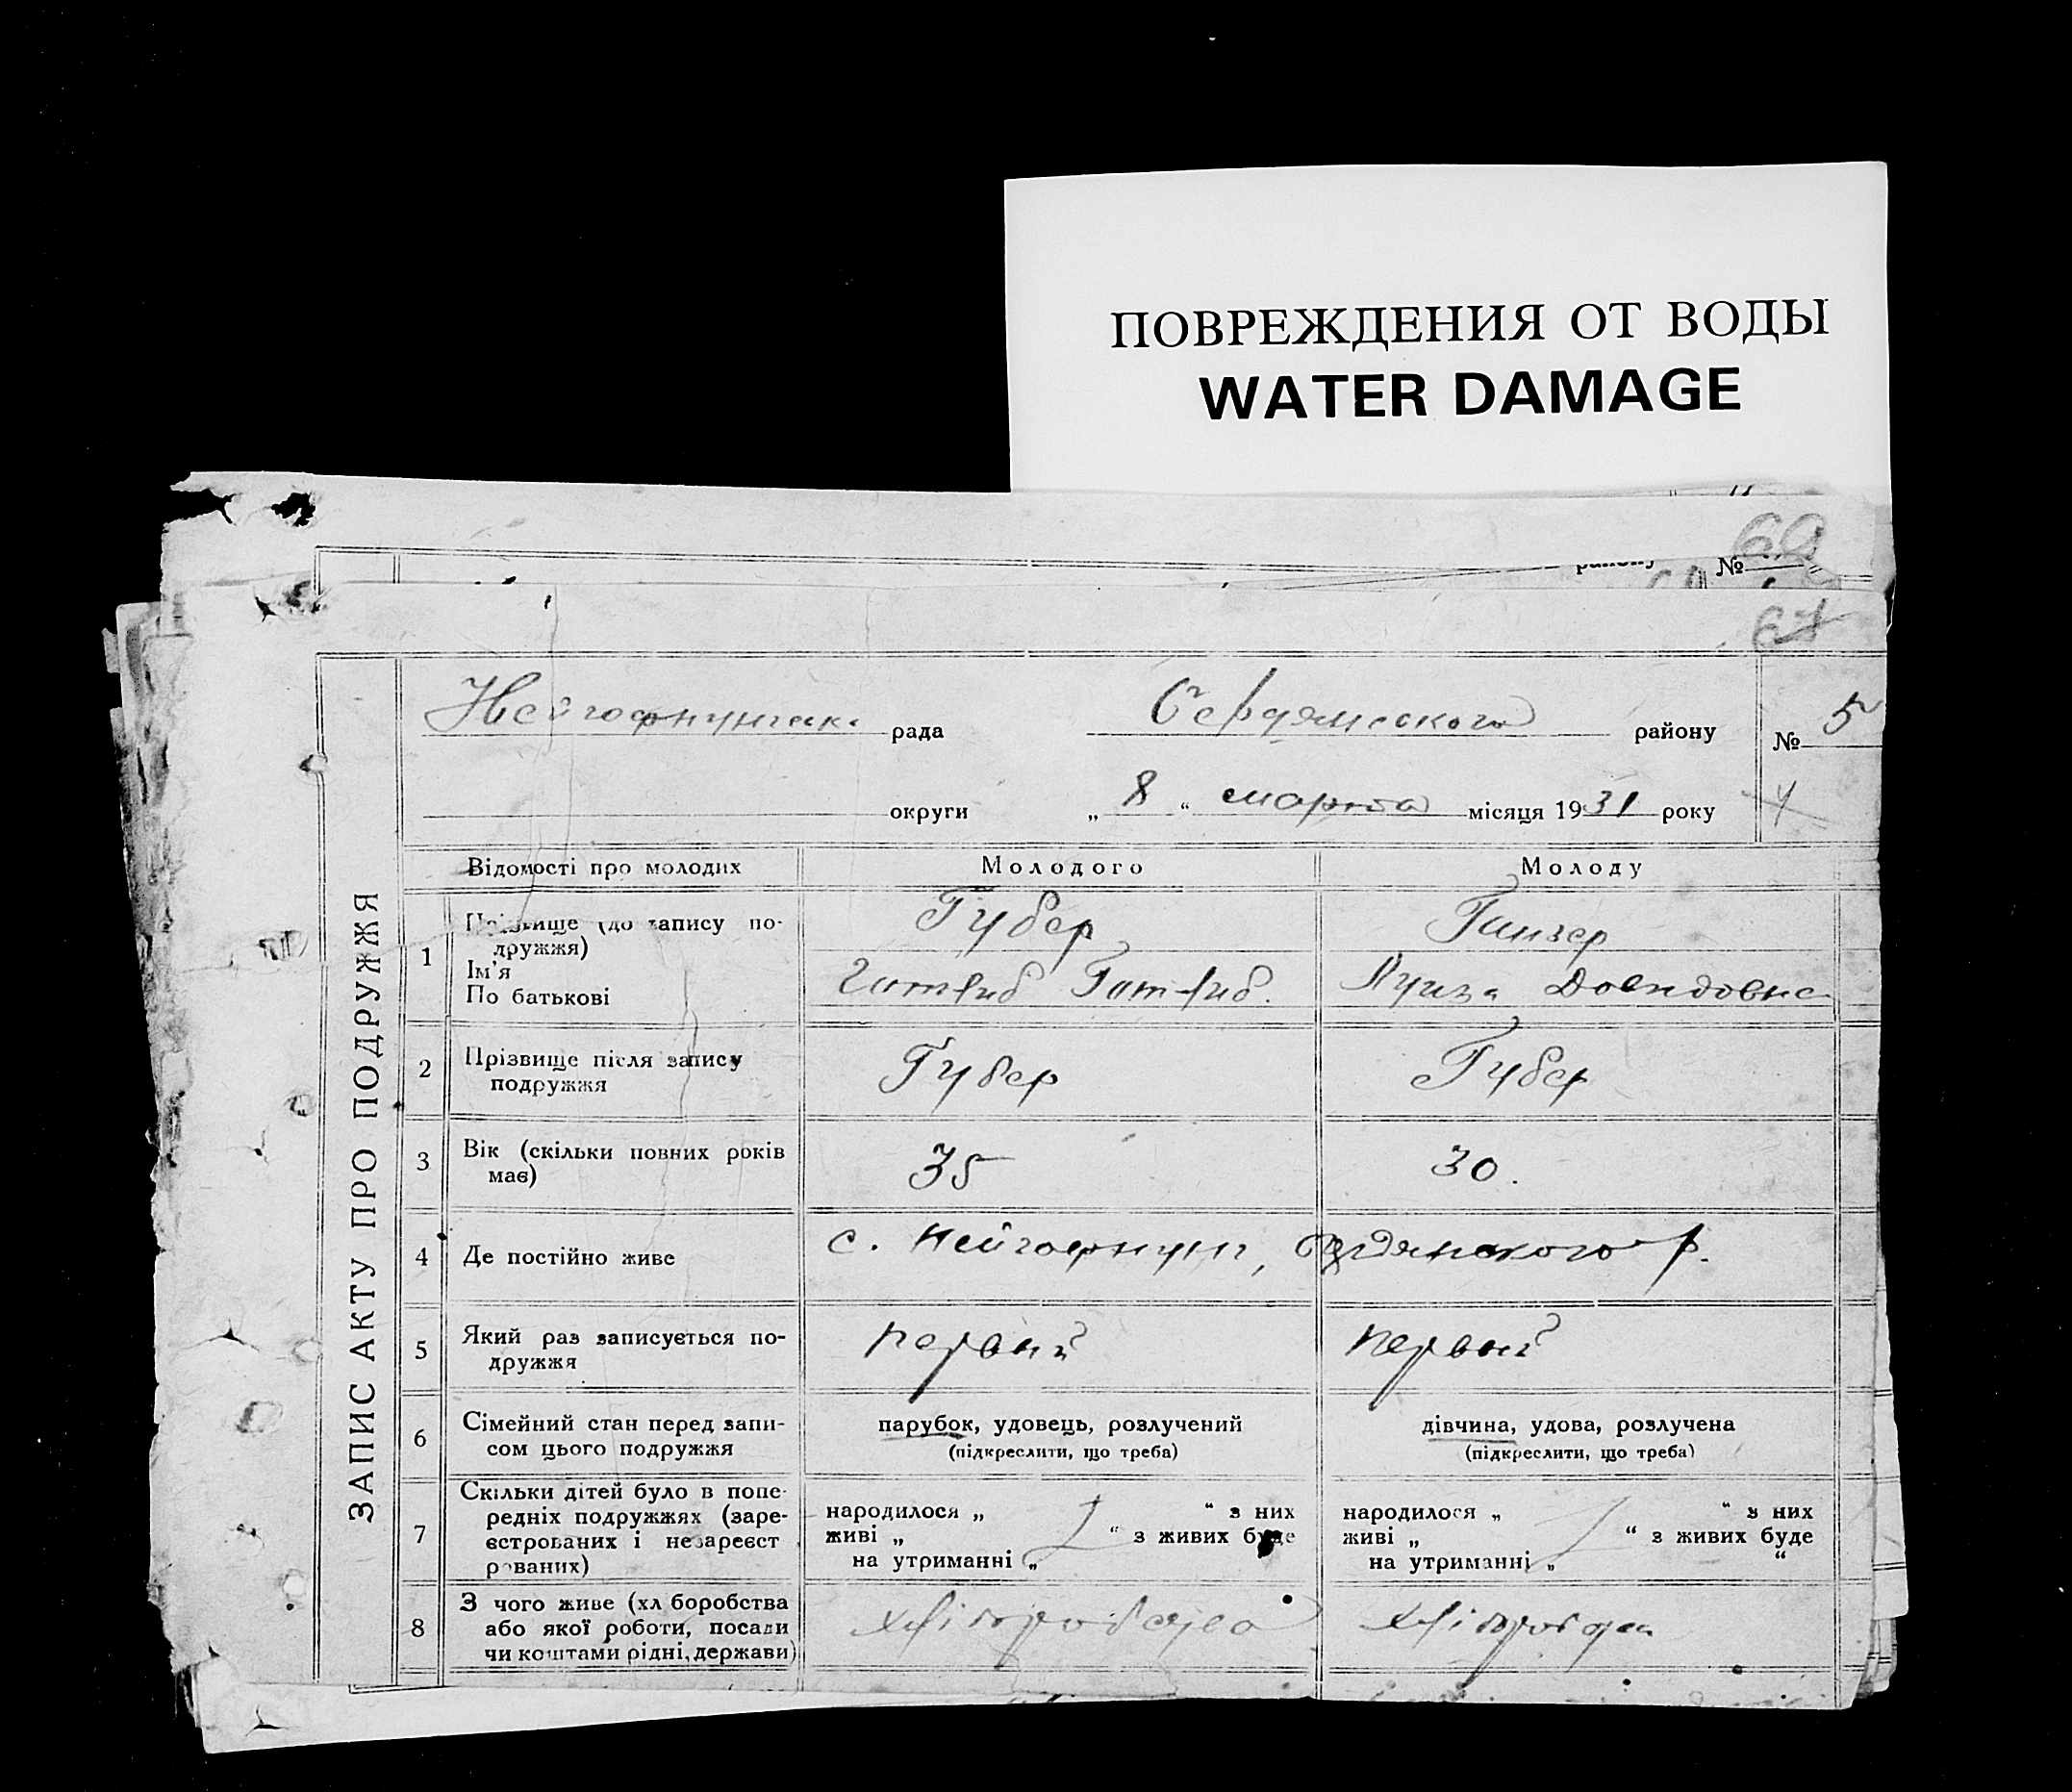 ПОВРЕЖДЕНИЯ ОТ ВОДЫ
WATER DAMAGE
району №
67
рада району № 5
округи „ 8 “ марта місяця 1931 року
ЗАПИС АКТУ ПРО ПОДРУЖЖЯ
Відомості про молодих Молодого Молоду
1 Прізвище (до запису по-
дружжя)
Ім'я
По батькові
Губер Ганзер
Готліб Готліб. Луиза Давидовна
2 Прізвище після запису
подружжя
Губер Губер
3 Вік (скільки повних років
має)
35 30.
4 Де постійно живе
с. Нейгофнунг, Бердянского р.
5 Який раз записується по-
дружжя
первый первый
6 Сімейний стан перед запи-
сом цього подружжя
парубок, удовець, розлучений дівчина, удова, розлучена
(підкреслити, що треба) (підкреслити, що треба)
7 Скільки дітей було в попе-
редніх подружжях (заре-
єстрованих і незареєст
рованих)
народилося „ “ з них народилося „ “ з них
живі „ “ з живих буде живі „ “ з живих буде
на утриманні „ на утриманні „ “
8 З чого живе (хл боробства
або якої роботи, посади
чи коштами рідні, держави)